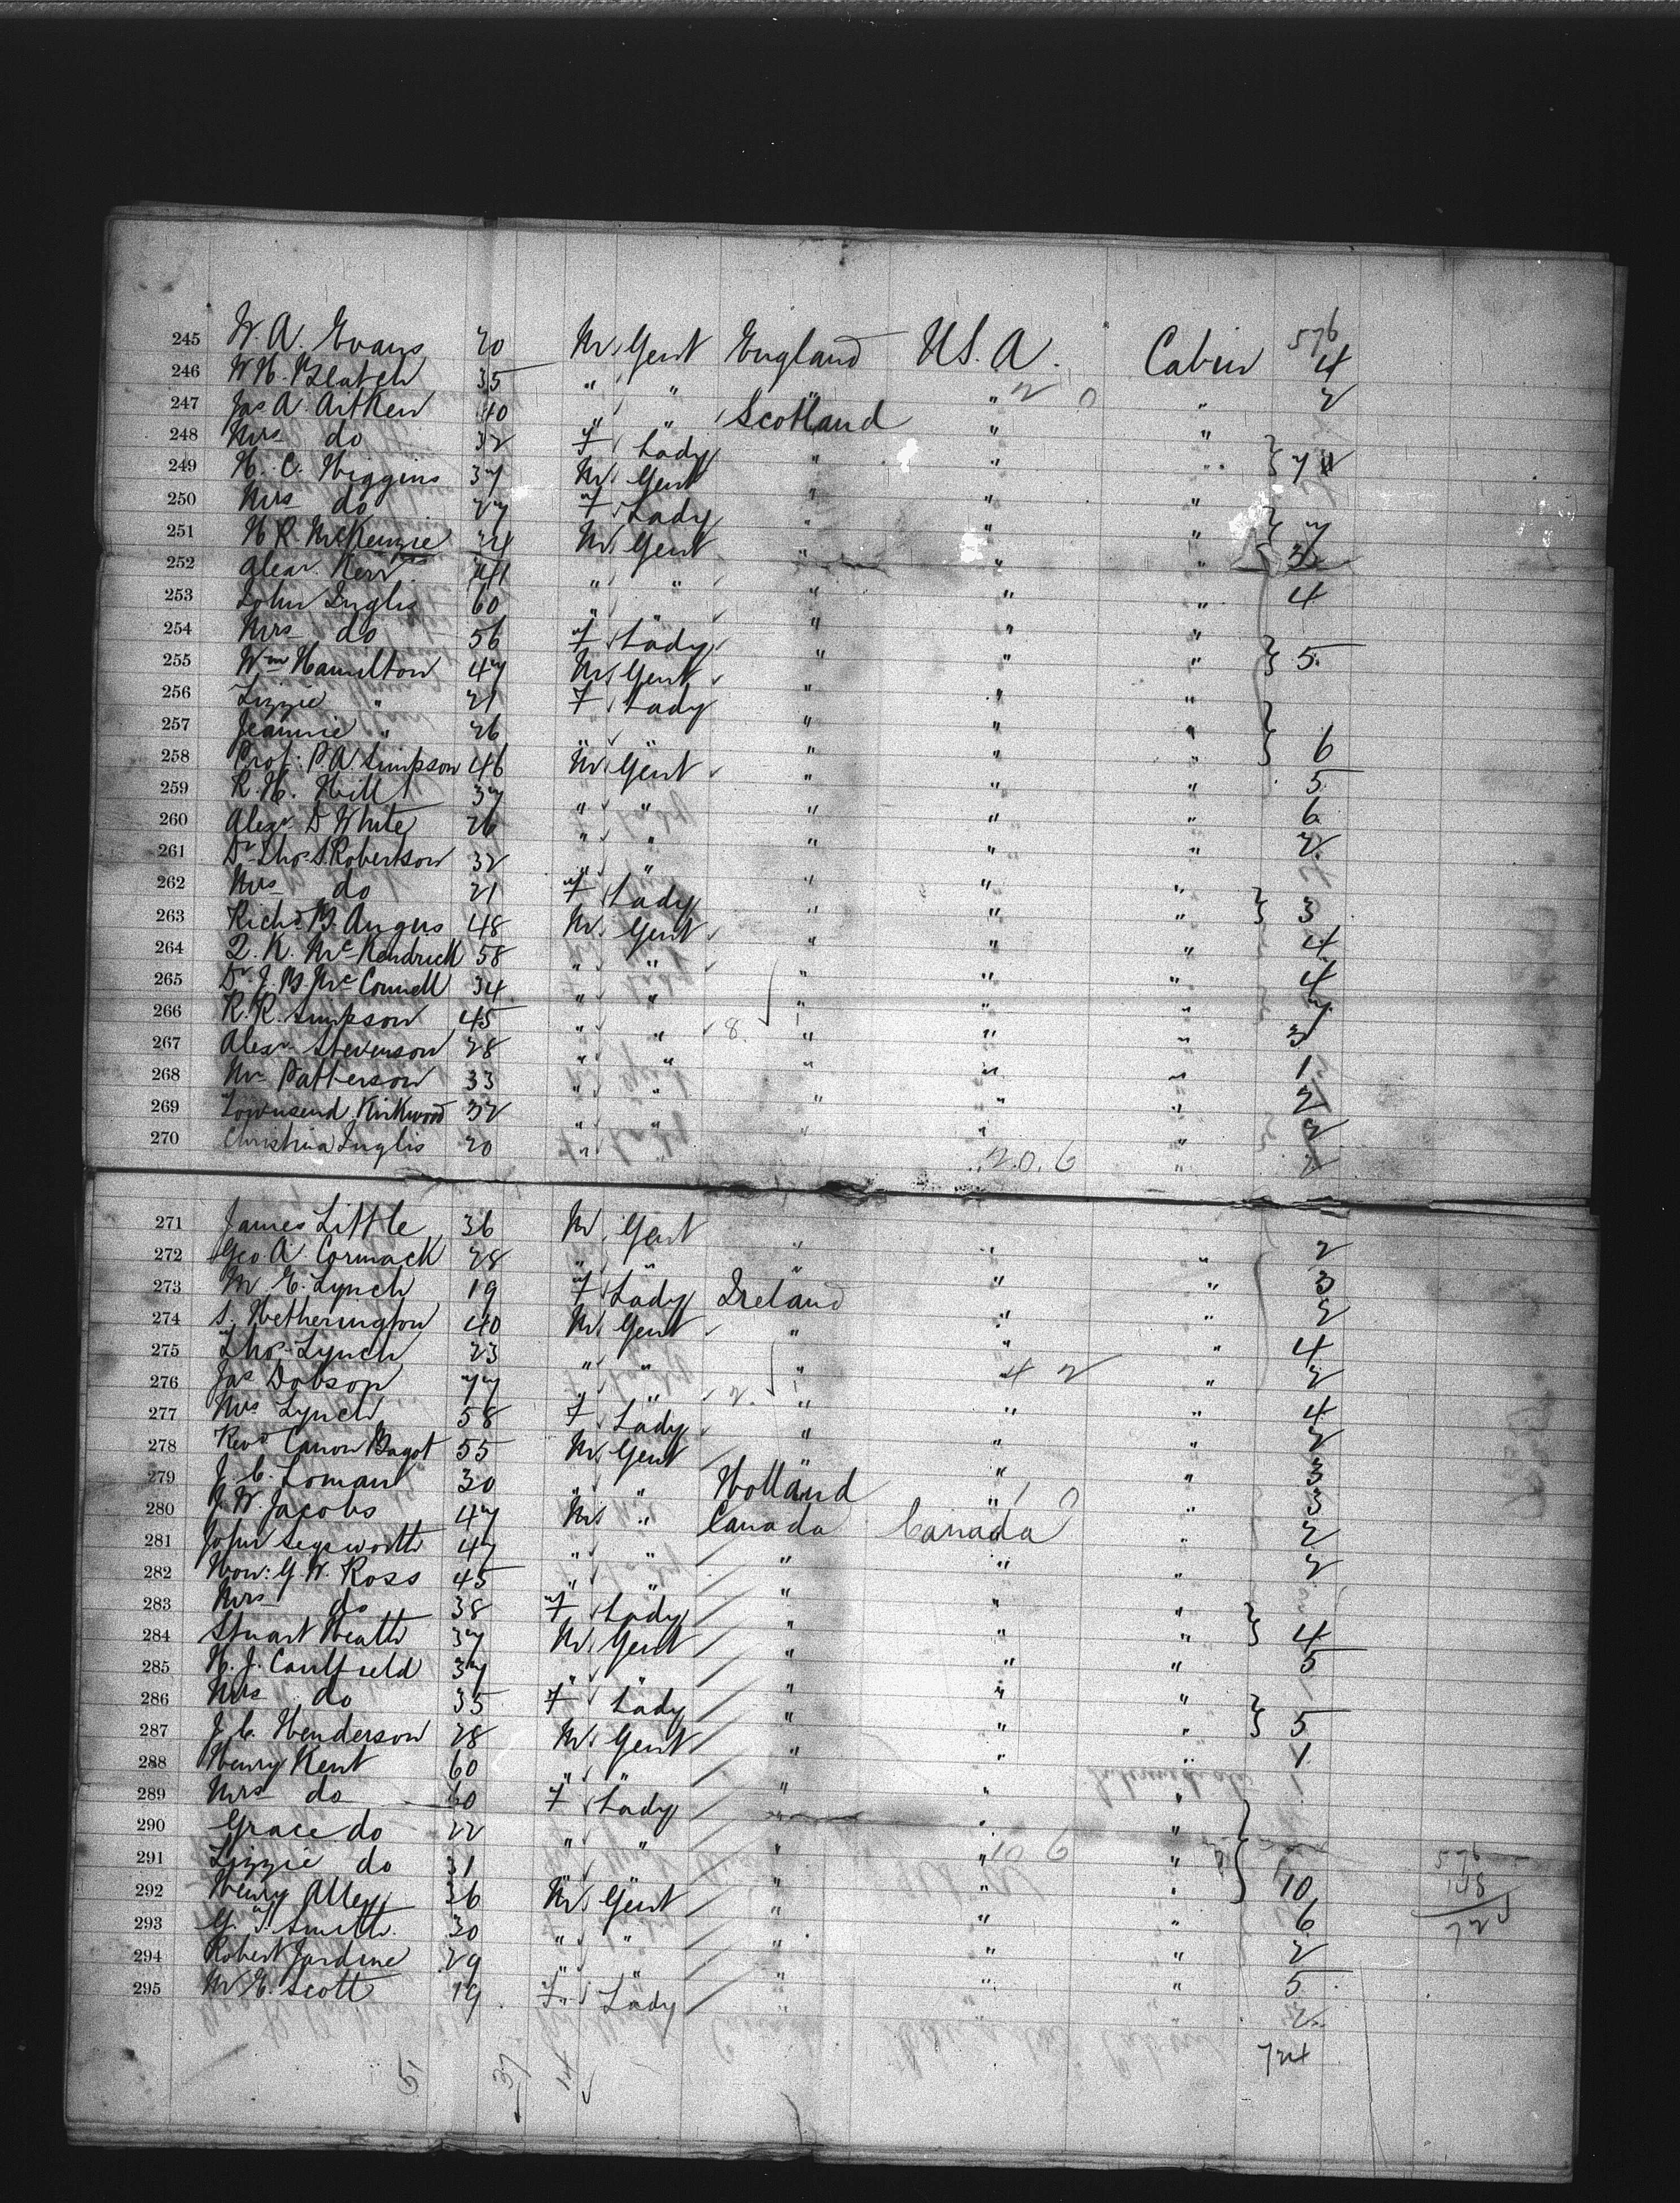 576
245 W. A. Evans 20 M Gent England U.S.A. Cabin 4
246 W H. Blatch 35 " " " " " 2
247 Jas A. Aitken 40 " " Scotland " "
248 Mrs do 32 F Lady " " " } 7
249 H. C. Higgins 37 M Gent " " "
250 Mrs do 27 F Lady " " " } 7
251 H R McKenzie 24 M Gent " " " 3
252 Alexr. Kerr 41 " " " " " 4
253 John Inglis 60 " " " " "
254 Mrs do 56 F Lady " " " } 5
255 Wm Hamilton 47 M Gent " " "
256 Lizzie " 21 F Lady " " "
257 Jeannie " 26 " " " " " } 6
258 Prof: P. A. Simpson 46 M Gent " " " 5
259 R. H. Hill 37 " " " " " 6
260 Alexr D White 26 " " " " " 2
261 Dr Thos S. Robertson 32 " " " " "
262 Mrs do 21 F Lady " " " } 3
263 Richd B. Angus 48 M Gent " " " 4
264 Q. K. McKendrick 58 " " " " " 4
265 Dr J. B. McConnell 34 " " " " "
266 R. R. Simpson 45 " " 8 " " " 3
267 Alexr Stevenson 28 " " " " " 1
268 Mr Patterson 33 " " " " " 2
269 Townsend Kirkwood 32 " " " " " 2
270 Christina Inglis 20 F Lady " " " 2
20.6
271 James Little 36 M Gent " " " 2
272 Geo. A. Cormack 28 " " " " " 3
273 M. E. Lynch 19 F Lady Ireland " " 2
274 S. Hetherington 40 M Gent " " " 4
275 Thos Lynch 23 " " " " " 2
276 Jas Dobson 77 " " 2 " 4 2 " 4
277 Mrs Lynch 58 F Lady " " " 2
278 Revd Canon Bagot 55 M Gent " " " 3
279 J. C. Loman 30 " " Holland " 1 0 " 3
280 J. W. Jacobs 47 M " Canada Canada " 2
281 John Segsworth 47 " " " " " 2
282 Hon: G. W. Ross 45 " " " " "
283 Mrs do 38 F Lady " " " } 4
284 Stuart Heath 37 M Gent " " " 5
285 H. J. Caulfield 37 " " " " "
286 Mrs do 35 F Lady " " " } 5
287 J. C. Henderson 28 M Gent " " " 1
288 Henry Kent 60 " " " " "
289 Mrs do 60 F Lady " " "
290 Grace do 22 " " " " "
291 Lizzie do 31 " " " 10 6 " } 10
292 Henry Alley 36 M Gent " " " 6
293 G. T. Smith 30 " " " " " 2
294 Robert Jardine 29 " " " " " 5
295 M. E. Scott 19 F Lady " " " 2
576
148
724
724
5 37 14